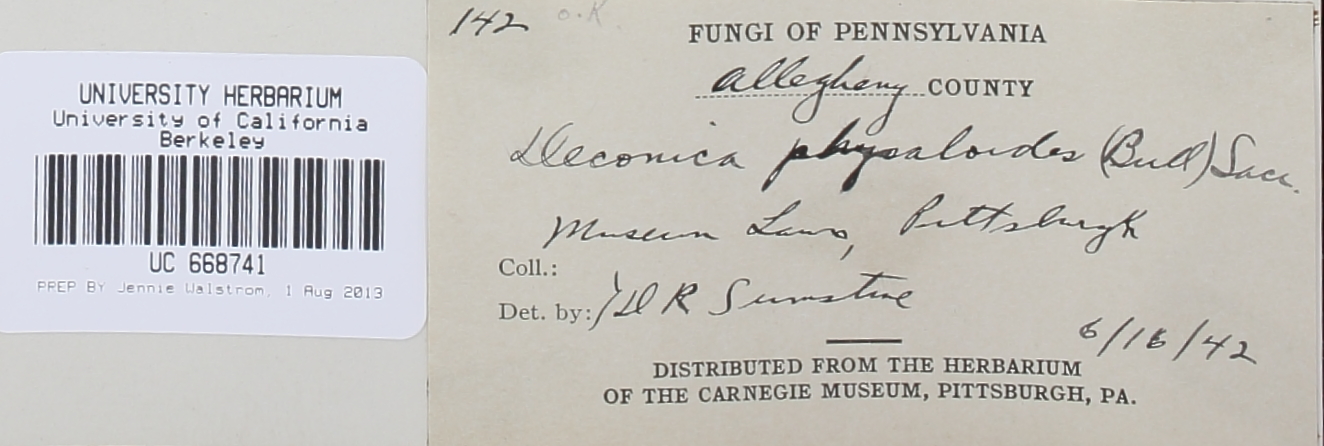 UNIVERSITY HERBARIUM
University of California
Berkeley
UC 668741
PREP BY Jennie Walstrom, 1 Aug 2013
142 O.K.
FUNGI OF PENNSYLVANIA
Allegheny COUNTY
Deconica physaloides (Bull) Sacc.
Museum Lawn, Pittsburgh
Coll.:
Det. by: D R Sumstine
6/16/42
DISTRIBUTED FROM THE HERBARIUM
OF THE CARNEGIE MUSEUM, PITTSBURGH, PA.